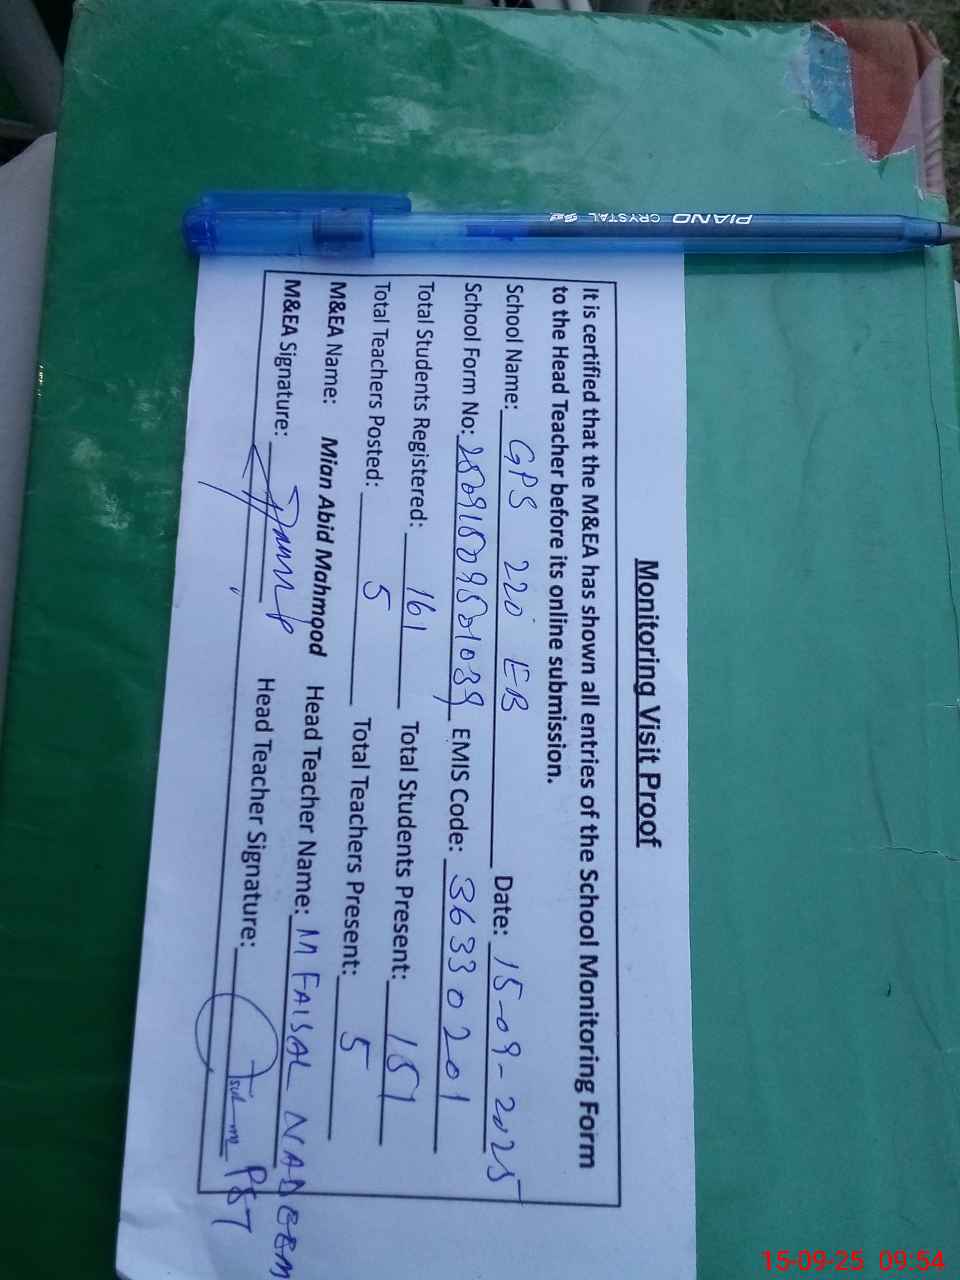 Monitoring Visit Proof
It is certified that the M&EA has shown all entries of the School Monitoring Form
to the Head Teacher before its online submission.
School Name: GPS 220 EB Date: 15-09-2025
School Form No: EMIS Code: 36330201
Total Students Registered: 161 Total Students Present: 151
Total Teachers Posted: 5 Total Teachers Present: 5
M&EA Name: Mian Abid Mahmood Head Teacher Name: M FAISAL NADEEM
M&EA Signature: Head Teacher Signature: PST
PIANO CRYSTAL
15-09-25 09:54